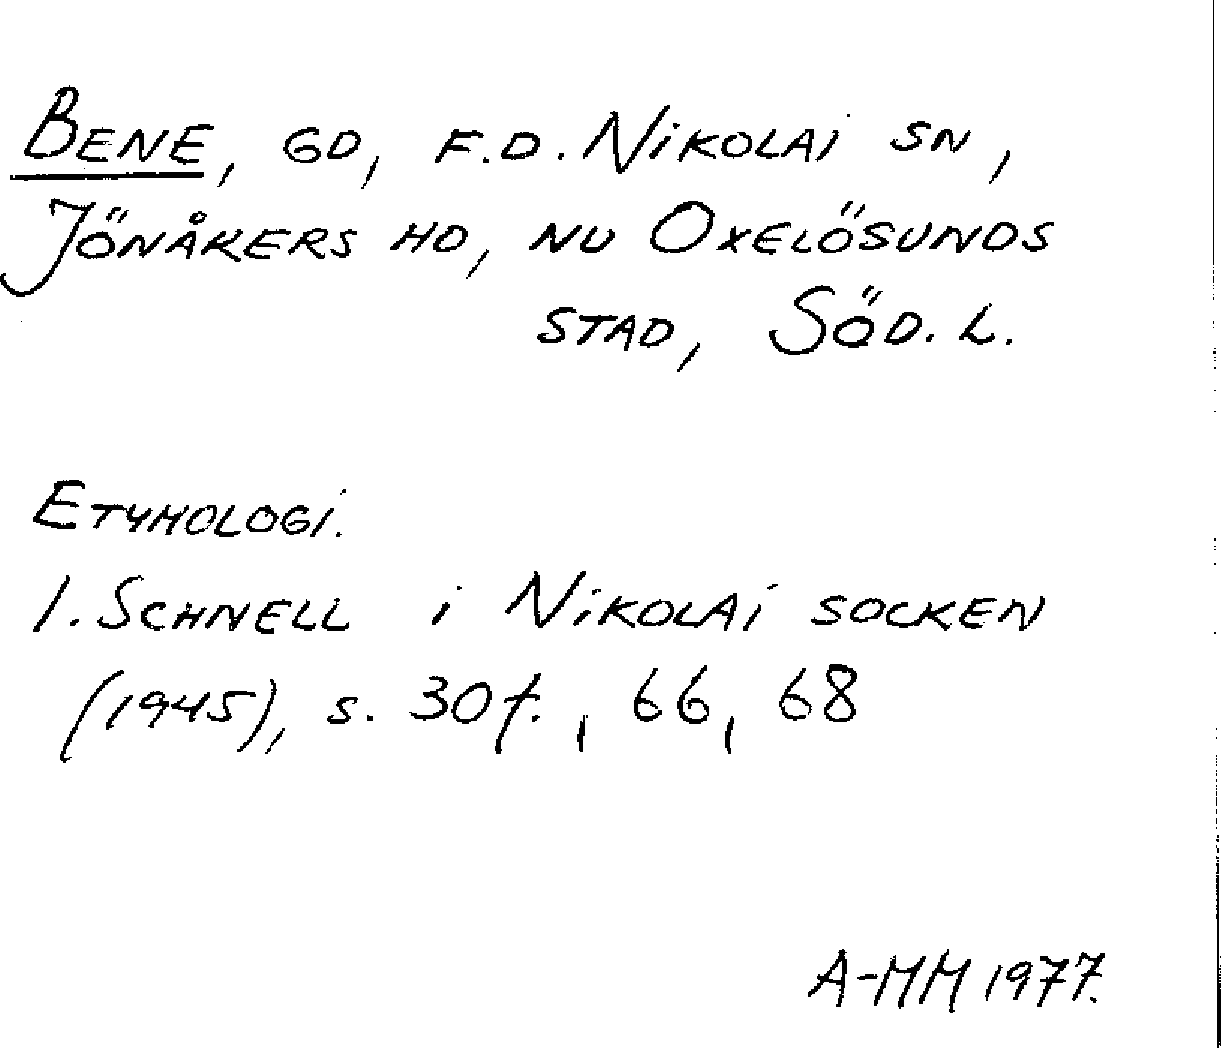 BENE, GD, F.D. NIKOLAI SN,
JÖNÅKERS HD, NU OXELÖSUNDS
STAD, SÖD. L.
ETYMOLOGI.
I. SCHNELL i NIKOLAI SOCKEN
(1945), s. 30f., 66, 68
A-MM 1977.